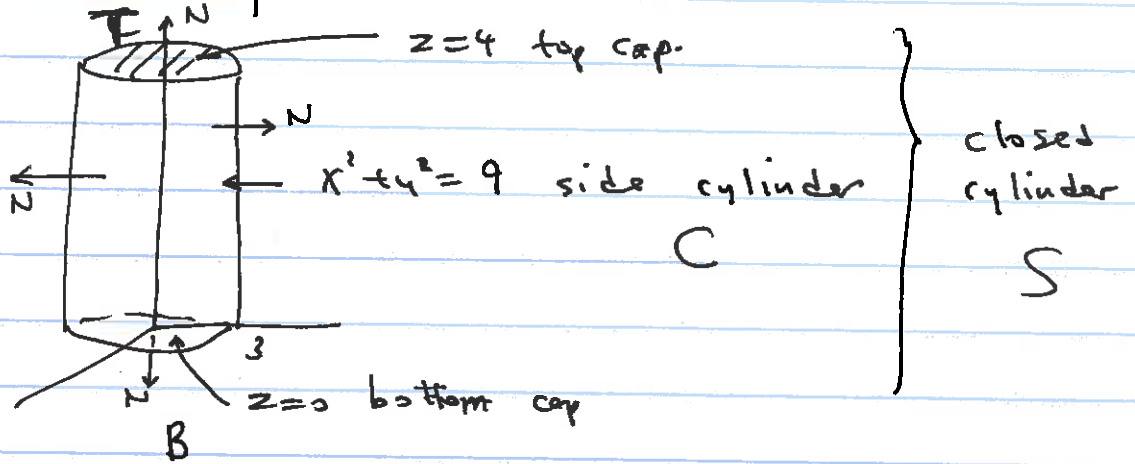 T N
z=4 top cap.
N
N
x²+y²=9 side cylinder
C
closed
cylinder
S
3
N
z=0 bottom cap
B